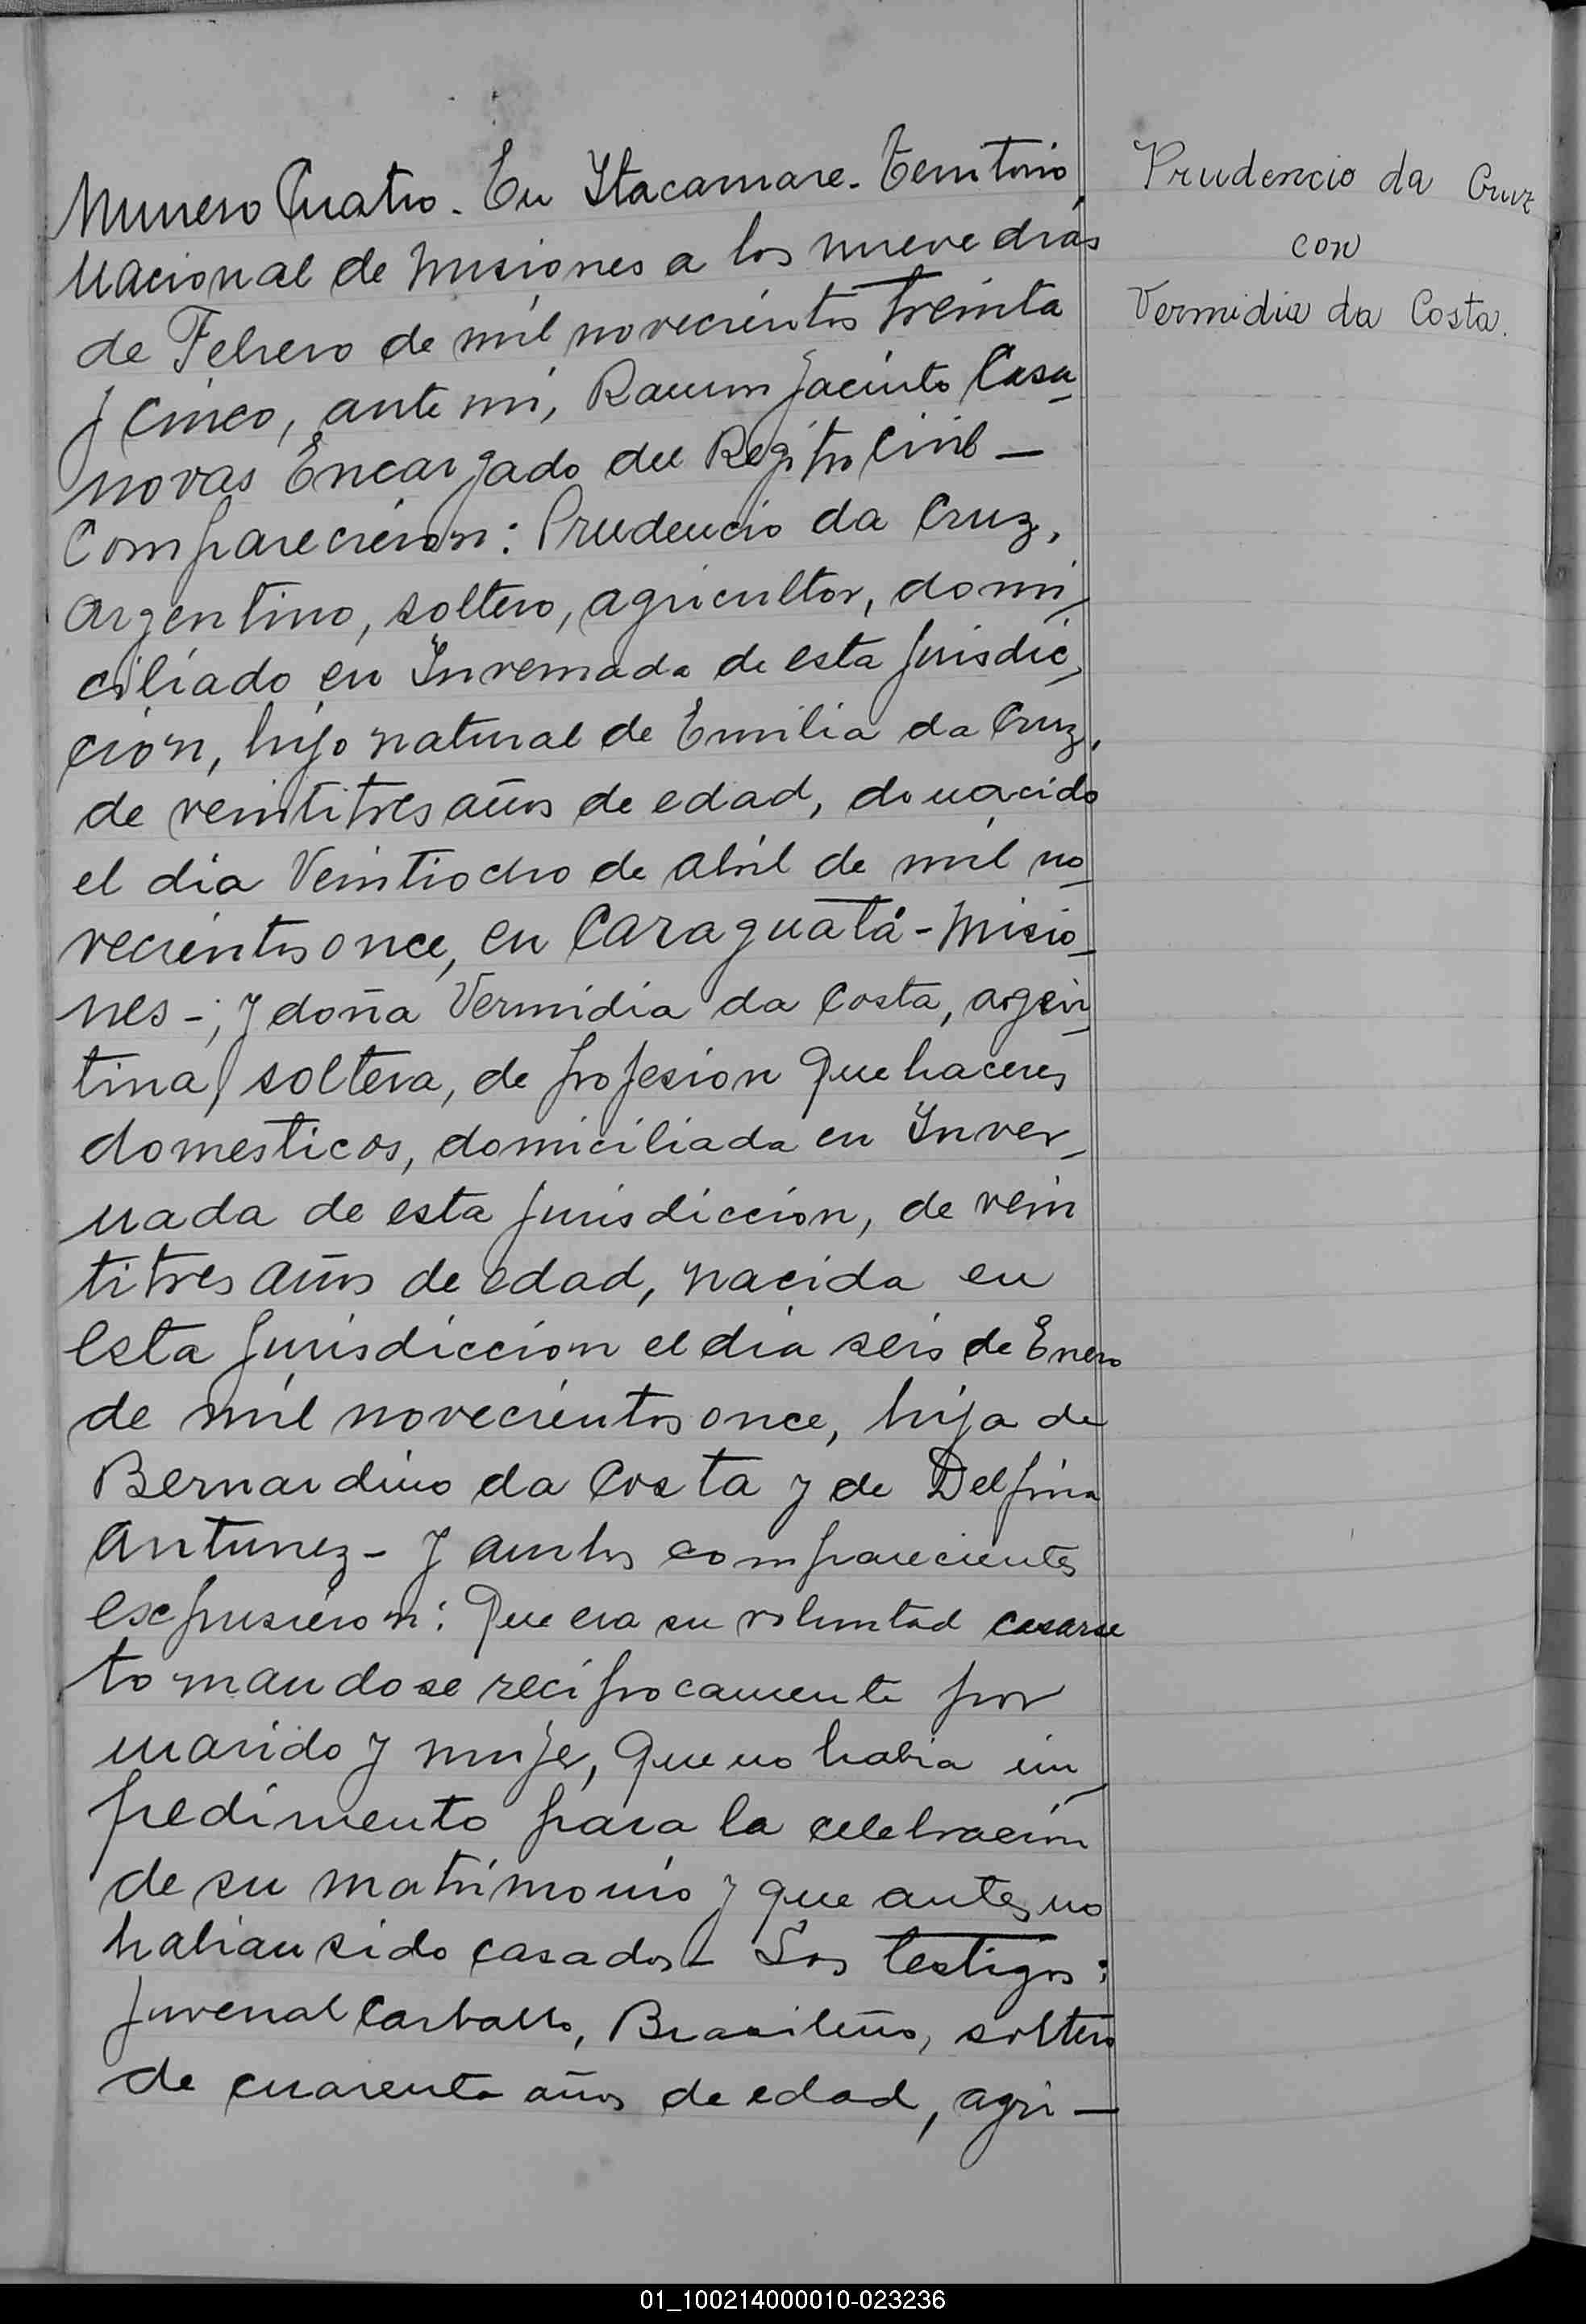 Numero Cuatro. En Itacaruare. Territorio
Nacional de Misiones a los nueve dias
de Febrero de mil novecientos treinta
y cinco, ante mi, Ramon Jacinto Casa-
novas Encargado del Regitro Civil -
Comparecieron: Prudencio da Cruz,
Argentino, soltero, agricultor, domi-
ciliado en Invernada de esta jurisdic-
cion, hijo natural de Emilia da Cruz,
de veintitres años de edad, do nacido
el dia Veintiocho de abril de mil no-
vecientos once, en Caraguatá - Misio-
nes -; y doña Vermidia da Costa, argen-
tina, soltera, de profesion Que haceres
domesticos, domiciliada en Inver-
nada de esta jurisdiccion, de vein
titres años de edad, nacida en
esta jurisdiccion el dia seis de Enero
de mil novecientos once, hija de
Bernardino da Costa y de Delfina
Antunez - y ambos comparecientes
expusieron: Que era su voluntad casarse
tomandose reciprocamente por
marido y mujer, que no habia im-
pedimento para la celebracion
de su matrimonio y que antes no
habian sido casados - Los testigos:
Juvenal Carballo, Brasileño, soltero
de cuarenta años de edad, agri -
Prudencio da Cruz
con
Vermidia da Costa.
01_100214000010-023236